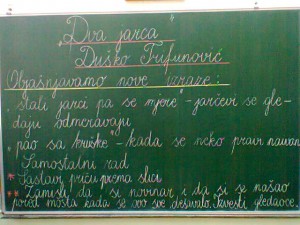 "Dva jarca"
Duško Trifunović
Objašnjavamo nove izraze:
"stali jarci pa se mjere" - jarčevi se gle-
daju odmeravaju
pao sa kruške - kada se neko pravi naivan
Samostalni rad
* Sastavi priču prema slici
** Zamisli da si novinar i da si se našao
pored mosta kada se ovo sve dešavalo. Izvesti gledaoce.